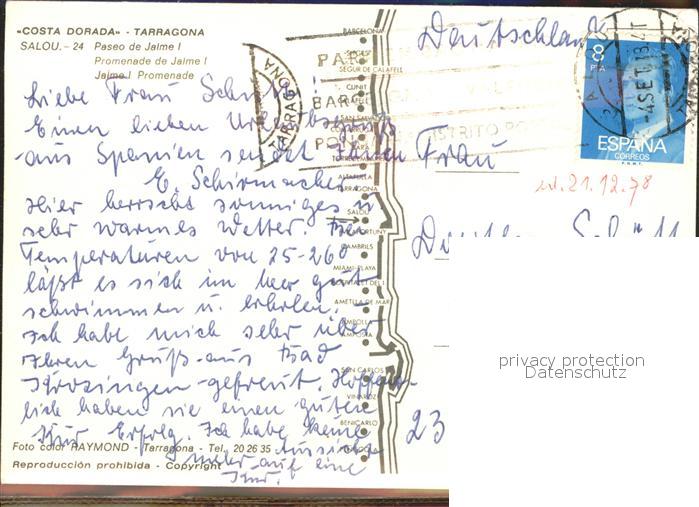 «COSTA DORADA» - TARRAGONA
SALOU. - 24 Paseo de Jaime I
Promenade de Jaime I
Jaime I Promenade
Deutschland
Liebe Frau
Einen lieben Urlaubsgruß
aus Spanien sendet Ihnen
E. Schirmacher
Hier herrscht sonniges u.
sehr warmes Wetter. Bei
Temperaturen von 25-26°
läßt es sich im Meer gut
schwimmen u. erholen.
Ich habe mich sehr über
Ihren Gruß aus Bad
Krozingen gefreut. Hoffent-
lich haben sie einen guten
Kur Erfolg. Ich habe keine
Aussicht
mehr auf eine
Kur.
Foto color RAYMOND - Tarragona - Tel. 20 26 35
Reproducción prohibida - Copyright
BARCELONA
SITGES
SEGUR DE CALAFELL
CUNIT
CALAFELL
SAN SALVADOR
ALTAFULLA
TARRAGONA
SALOU
CAMBRILS
MIAMI-PLAYA
AMETLLA DE MAR
AMPOLLA
AMPOSTA
SAN CARLOS
VINAROZ
BENICARLO
TARRAGONA
DISTRITO
8
PTA
ESPAÑA
CORREOS
4 SET. 78
21.12.78
Frau
23
privacy protection
Datenschutz